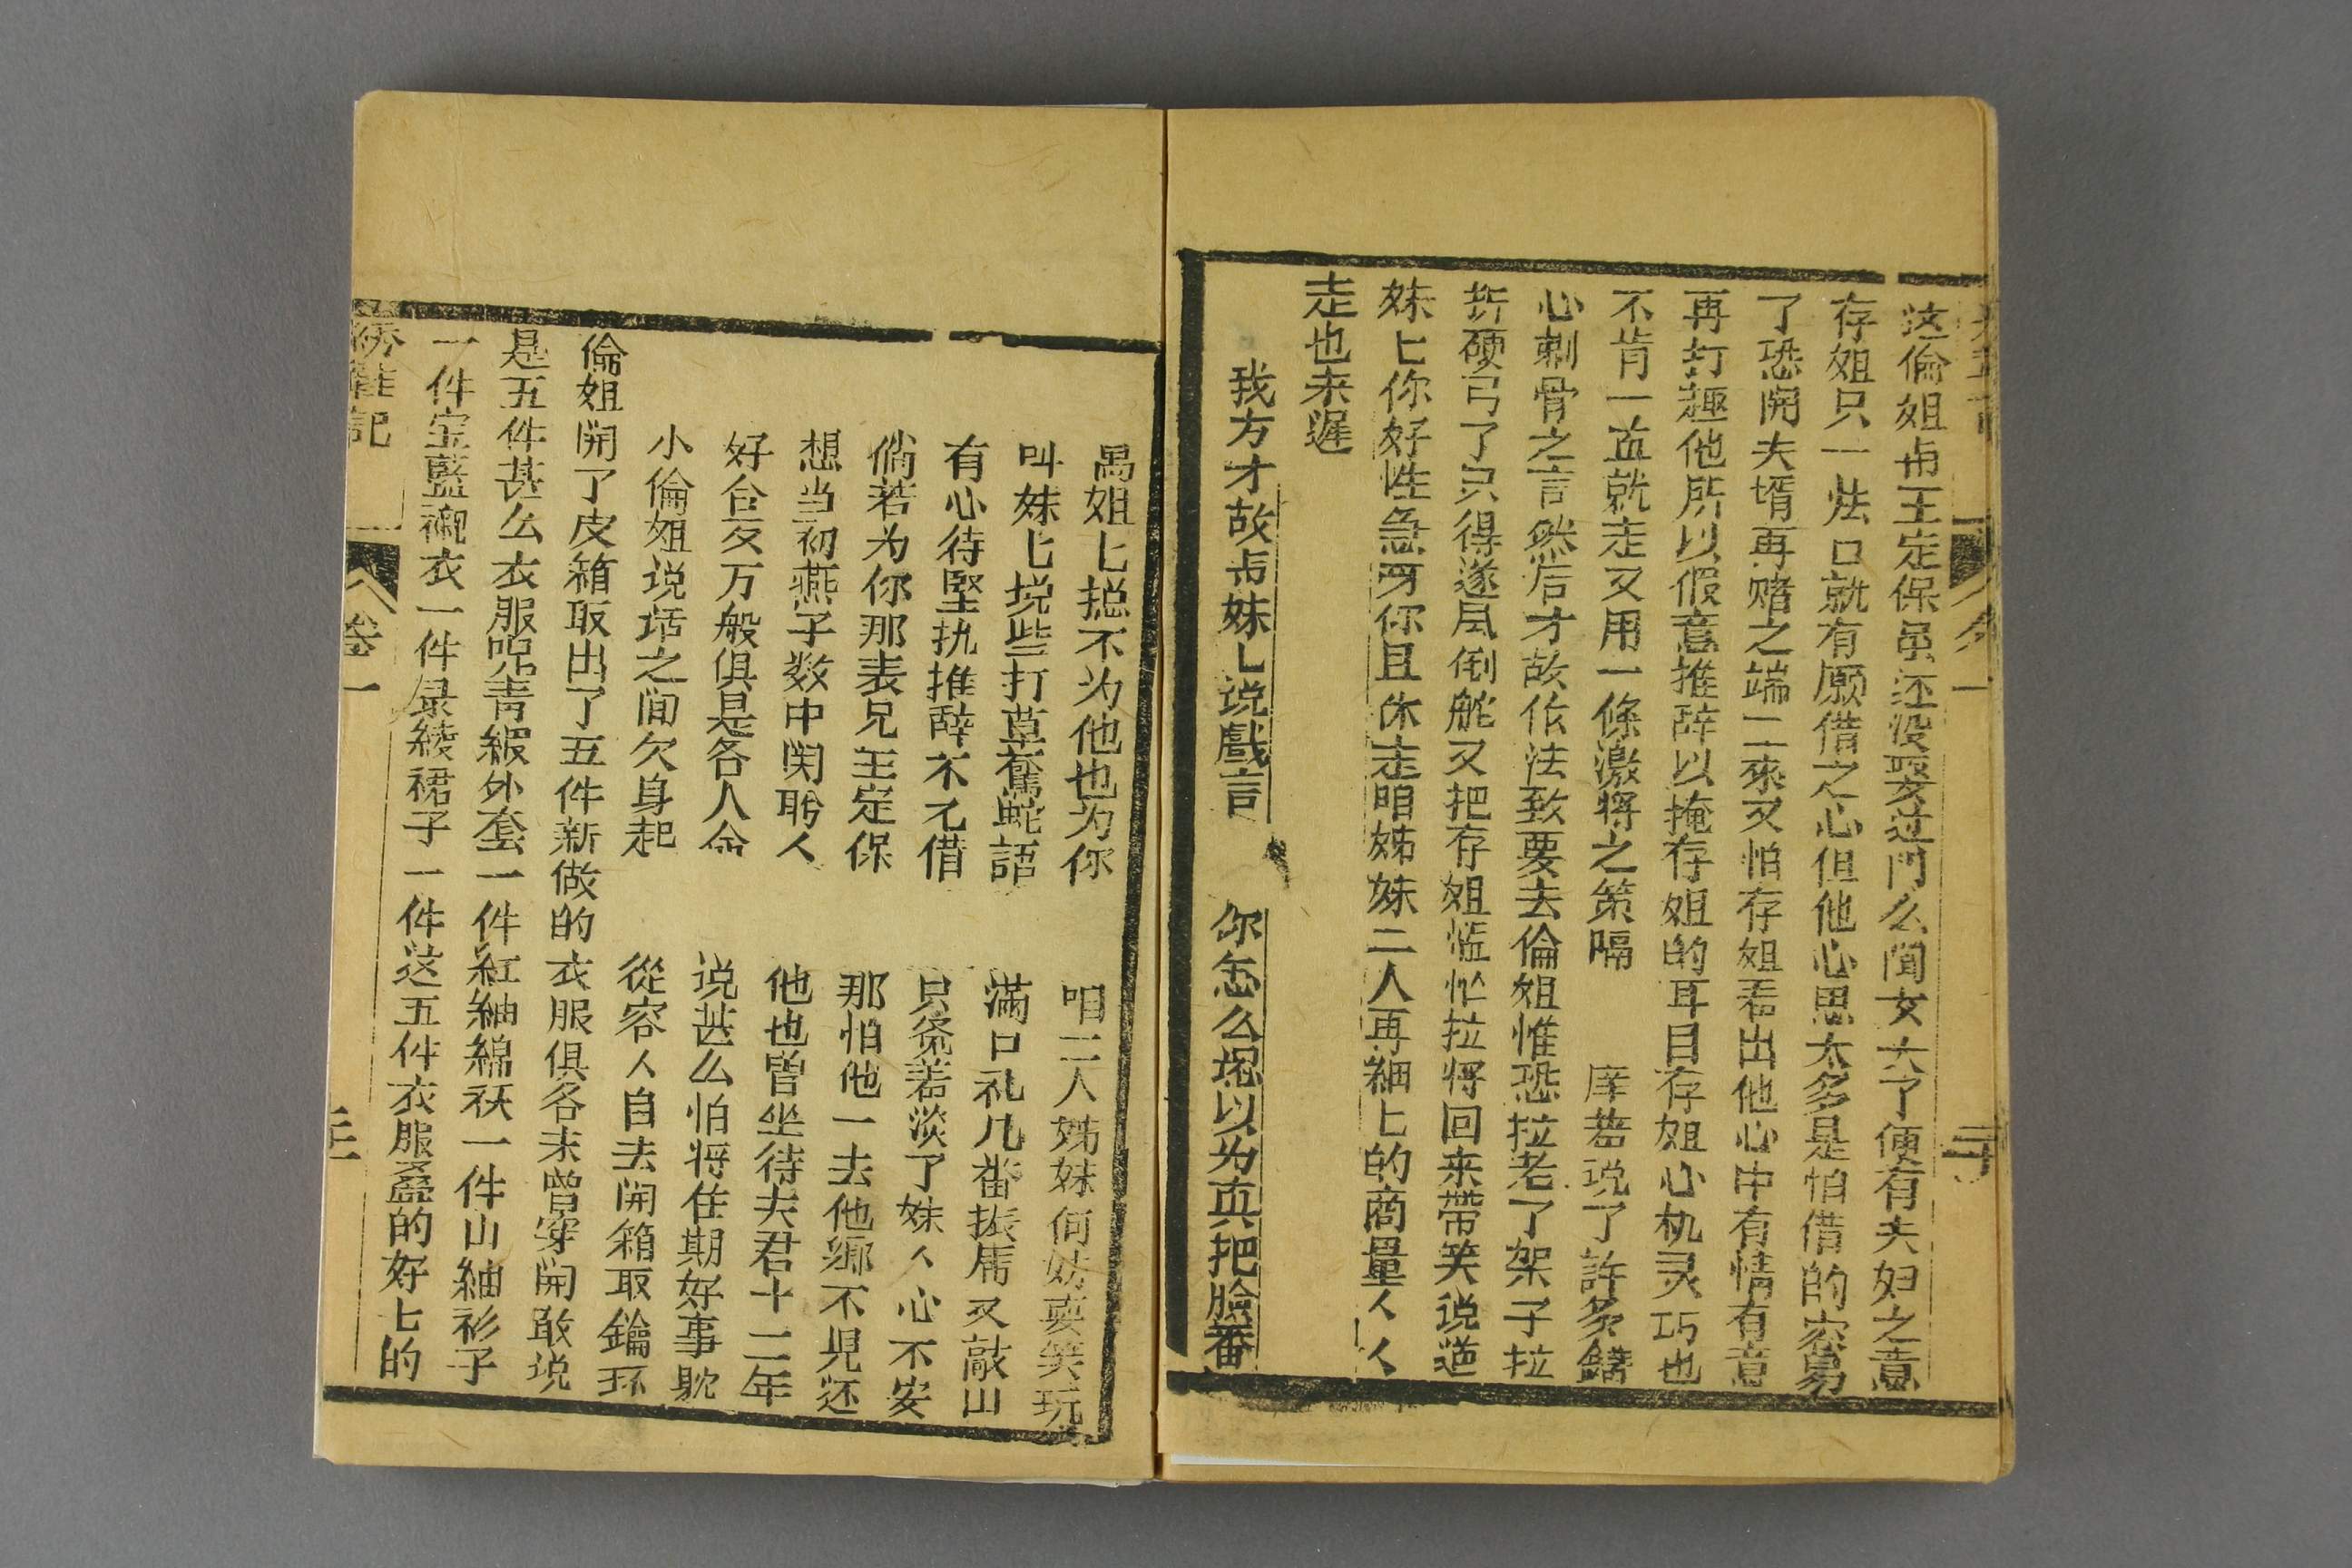 这倫姐与王定保虽还没娶过门么闻女大了便有夫妇之意
存姐只一怯口就有愿借之心但他心思太多是怕借的容易
了恐開夫壻再赌之端二來又怕存姐看出他心中有情有意
再打趣他所以假意推辞以掩存姐的耳目存姐心机灵巧也
不肯一直就走又用一條激将之策嗝 庠著说了許多鑄
心刺骨之言然后才故依法致要去倫姐惟恐拉老了架子拉
折硬弓了只得遂凬倒舵又把存姐慌忙拉将回来帶笑说道
妹匕你好性急呀你且休走咱姊妹二人再細匕的商量人人
走也来遲
我方才故与妹匕说戲言 你怎么堒以为真把臉番
禺姐匕摠不为他也为你 咱二人姊妹何妨耍笑玩
叫妹匕说些打草驚蛇語 滿口礼几番振馬又敲山
有心待堅执推辞不允借 只覚着淡了妹人心不安
倘若为你那表兄王定保 那怕他一去他鄉不見还
想当初燕子数中関盻人 他也曾坐待夫君十二年
好合友万般俱是各人命 说甚么怕将住期好事躭
小倫姐说话之间欠身起 從容人自去開箱取鑰环
倫姐開了皮箱取出了五件新做的衣服俱各未曾穿開敢说
是五件甚么衣服呢青緞外套一件紅紬綿袄一件山紬衫子
一件宝藍襯衣一件录綾裙子一件这五件衣服叠的好七的
綉鞋記 卷一